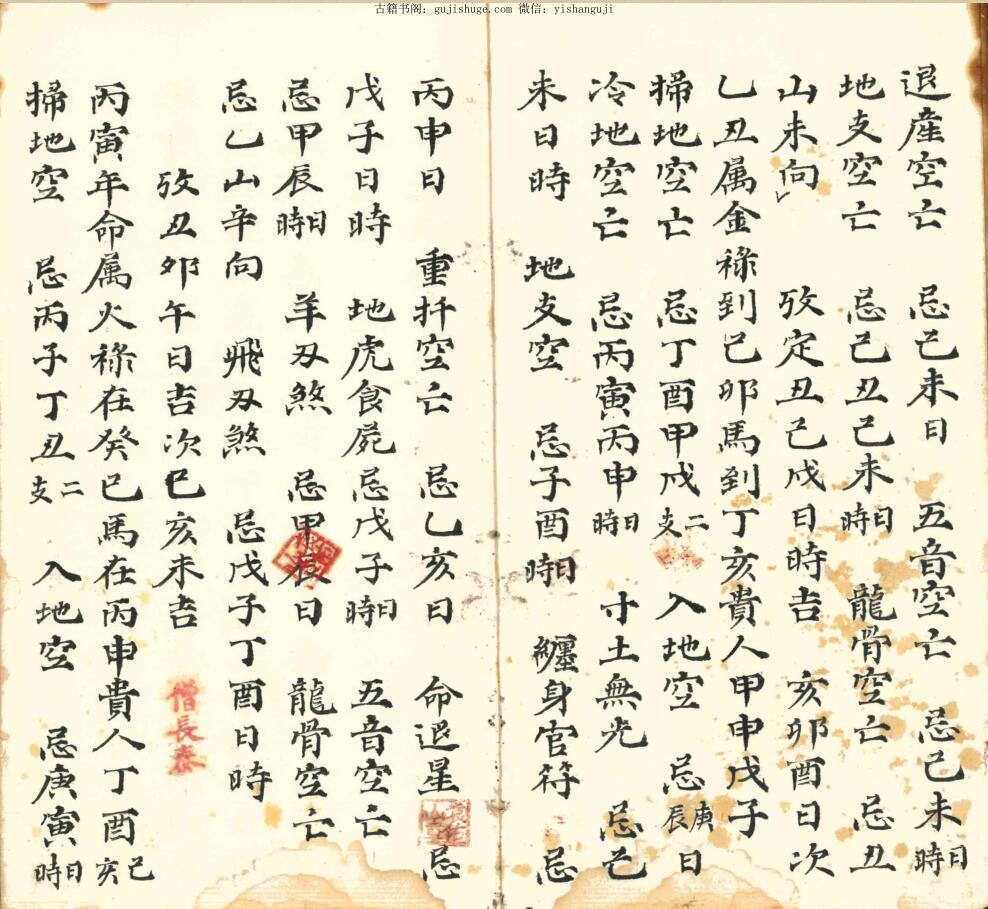 古籍书阁：gujishuge.com 微信：yishanguji
退産空亡 忌己未日 五音空亡 忌己未日時
地支空亡 忌己丑己未日時 龍骨空亡 忌丑
山未向 攷定丑己戍日時吉 亥卯酉日次
乙丑属金祿到己卯馬到丁亥貴人甲申戊子
掃地空亡 忌丁酉甲戍二支 入地空 忌庚辰日
冷地空亡 忌丙寅丙申日時 寸土無光 忌己
未日時 地支空 忌子酉日時 纏身官符 忌
丙申日 重扦空亡 忌乙亥日 命退星 忌
戊子日時 地虎食屍忌戊子日時 五音空亡
忌甲辰日時 羊刃煞 忌甲辰日 龍骨空亡
忌乙山辛向 飛刃煞 忌戊子丁酉日時
攷丑卯午日吉次巳亥未吉
僧長泰
丙寅年命属火祿在癸巳馬在丙申貴人丁酉己亥
掃地空 忌丙子丁丑二支 入地空 忌庚寅日時